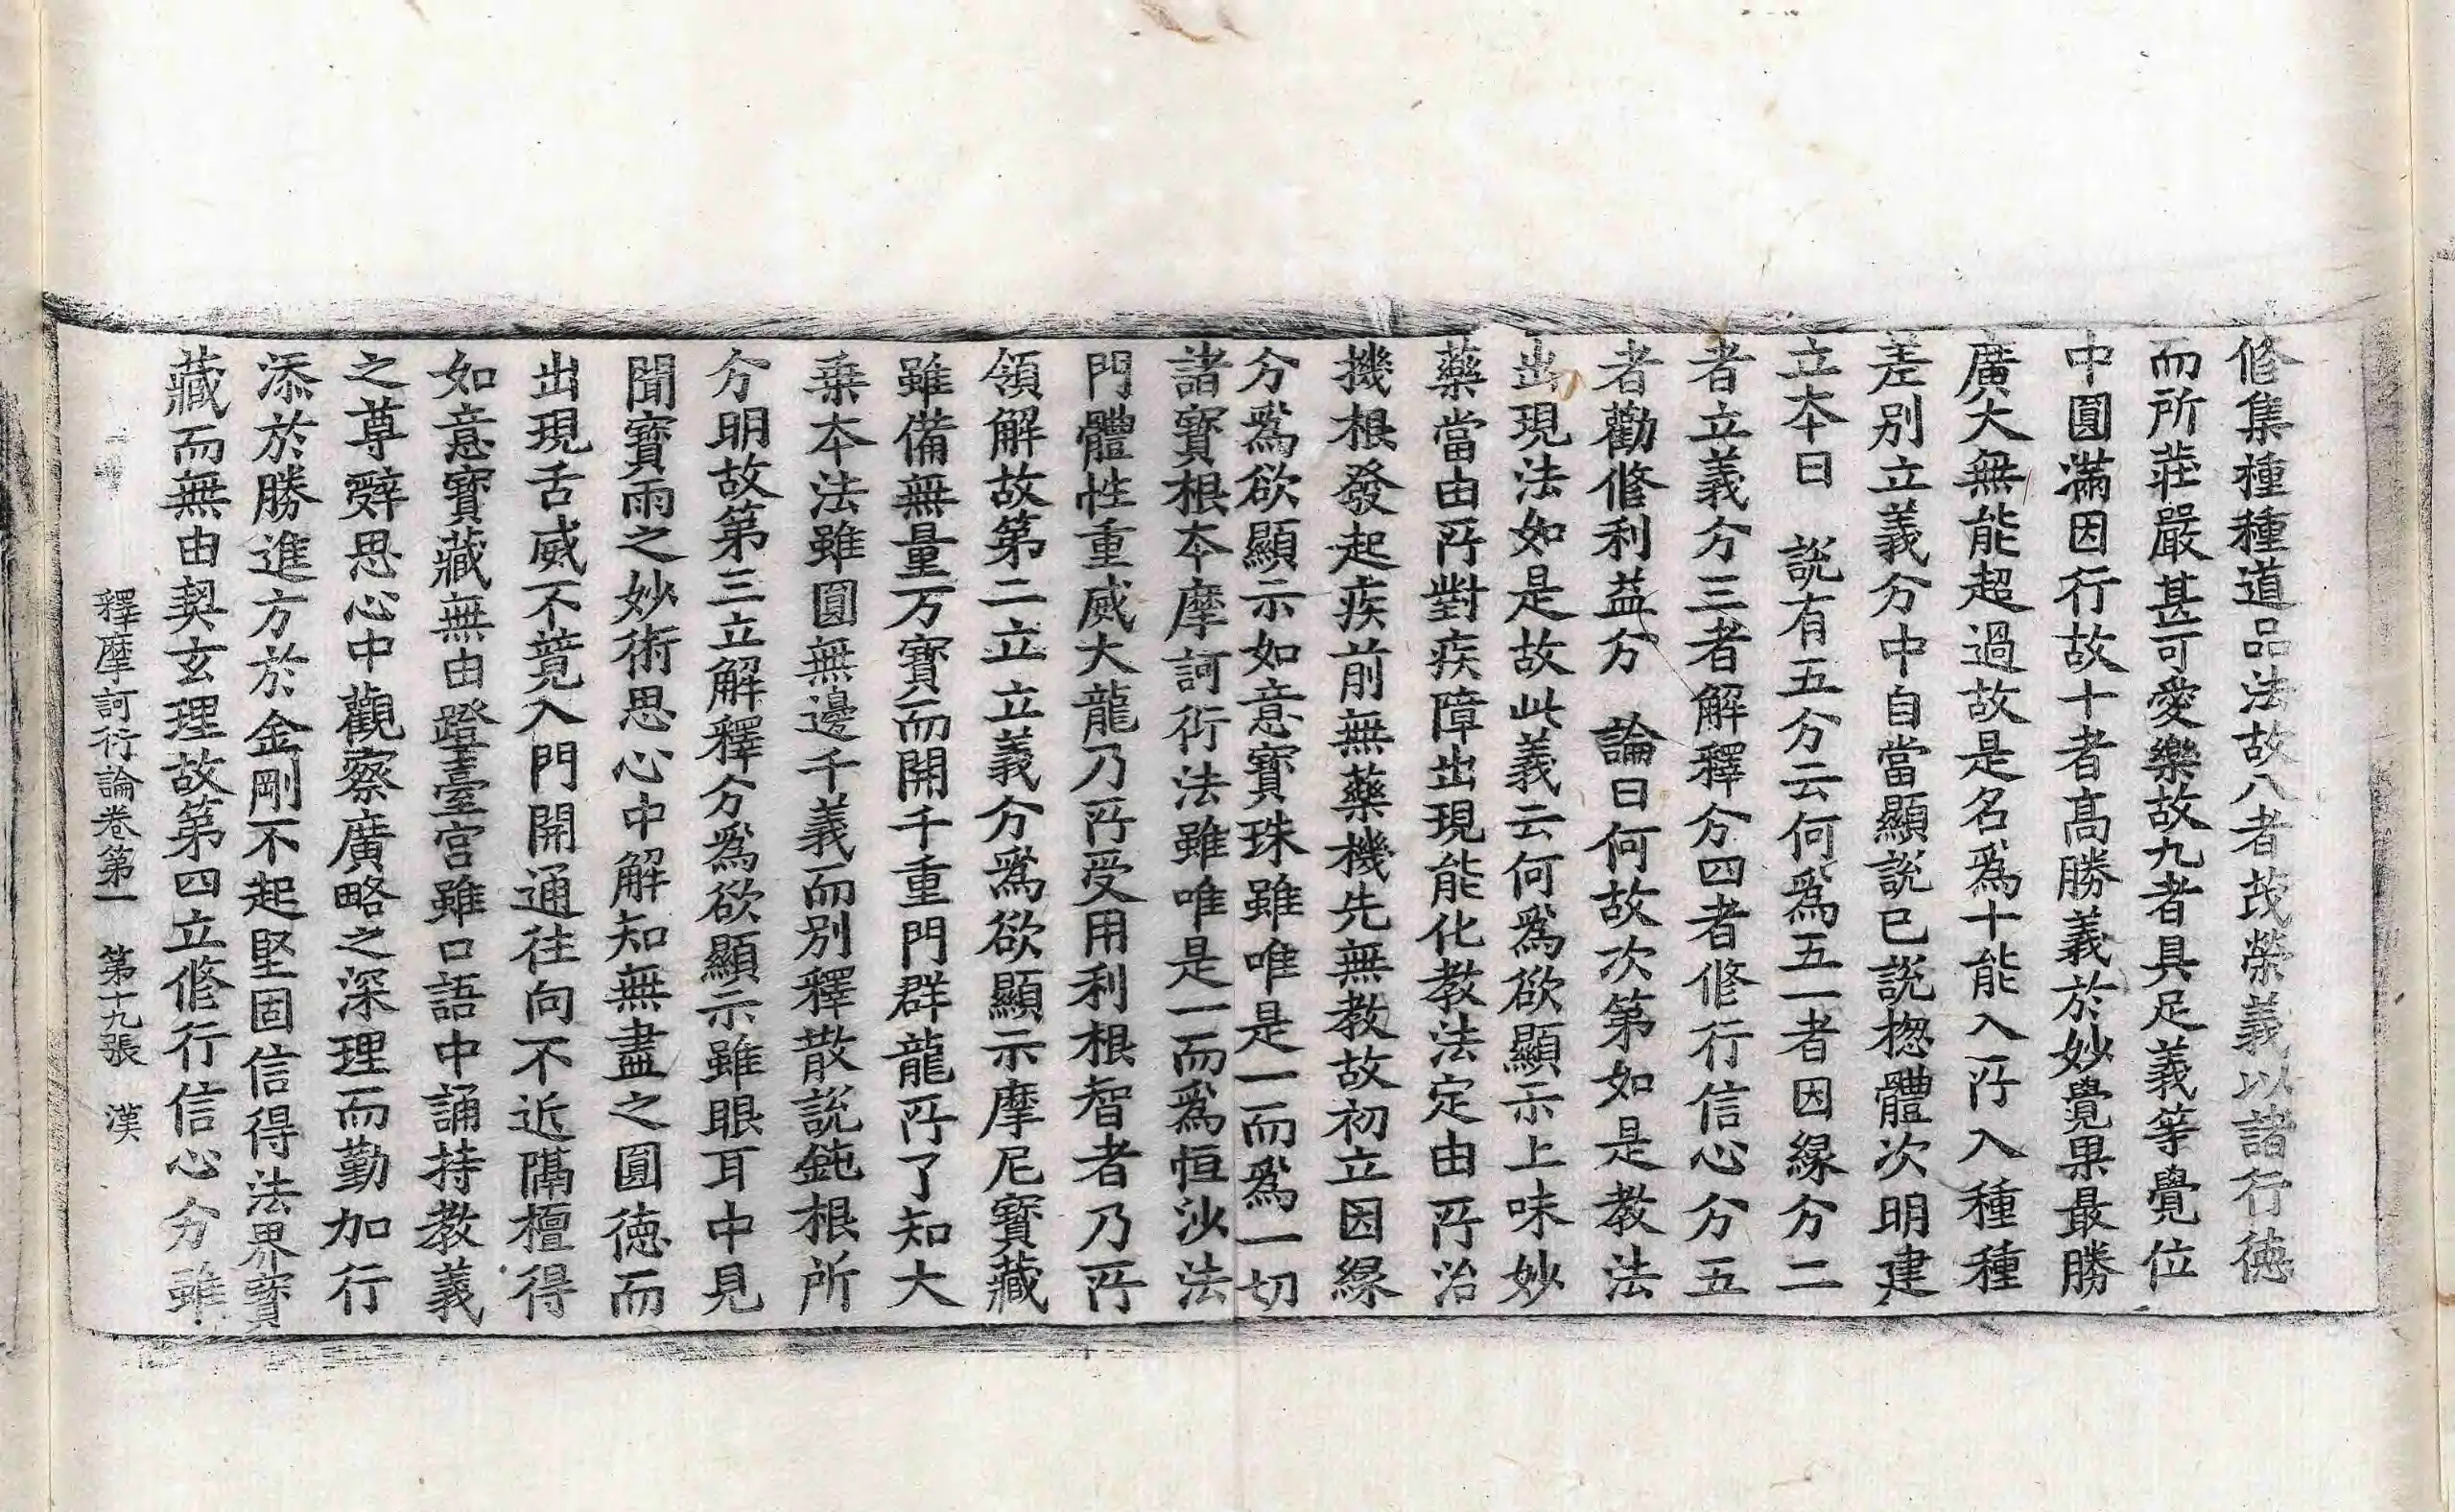 修集種種道品法故八者茂榮義以諸行徳
而所莊嚴甚可愛樂故九者具足義等覺位
中圓滿因行故十者髙勝義於妙覺果最勝
廣大無能超過故是名爲十能入所入種種
差別立義分中自當顯説已説揔體次明建
立本曰　説有五分云何爲五一者因縁分二
者立義分三者解釋分四者修行信心分五
者勸修利益分　論曰何故次第如是教法
出現法如是故此義云何爲欲顯示上味妙
藥當由所對疾障出現能化教法定由所治
機根發起疾前無藥機先無教故初立因緣
分爲欲顯示如意寶珠雖唯是一而爲一切
諸寶根本摩訶衍法雖唯是一而爲恒沙法
門體性重威大龍乃所受用利根智者乃所
領解故第二立立義分爲欲顯示摩尼寶藏
雖備無量万寶而開千重門群龍所了知大
乗本法雖圓無邊千義而別釋散説鈍根所
分明故第三立解釋分爲欲顯示雖眼耳中見
聞寶雨之妙術思心中解知無盡之圓徳而
出現舌威不竟入門開通往向不近隔檀得
如意寶藏無由蹬臺宮雖口語中誦持教義
之尊辤思心中觀察廣略之深理而勤加行
添於勝進方於金剛不起堅固信得法界寶
藏而無由契玄理故第四立修行信心分雖
釋摩訶衍論卷第一　第十九張　漢